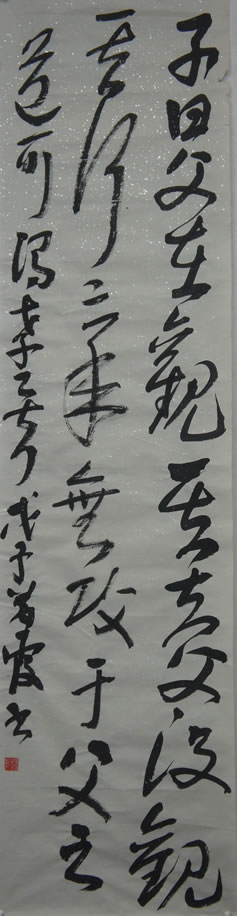 子曰父在觀其志父没觀
其行三年無改于父之
道可謂孝矣戊子霞书